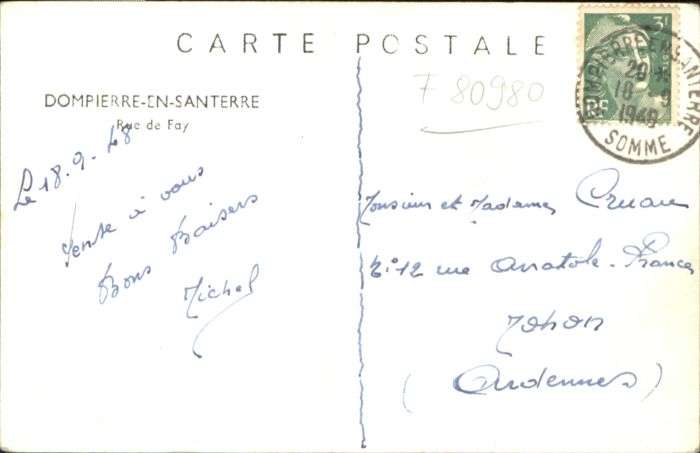 CARTE POSTALE
DOMPIERRE-EN-SANTERRE
Rue de Fay
Le 18.9.48
à vous
Bons Baisers
Michel
F 80980
3F
DOMPIERRE-EN-SANTERRE
20 *
18 - 9
1948
SOMME
Monsieur et Madame Cruau
N° 12 rue Anatole-France
Mohon
(Ardennes)